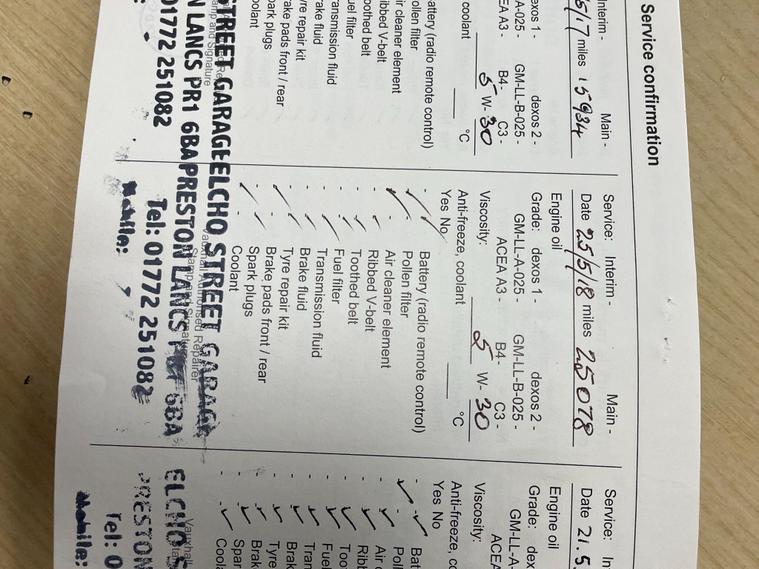 Service confirmation
Interim - Main -
5/17 miles 15934
dexos 1 - dexos 2 -
A-025 - GM-LL-B-025 -
CEA A3 - B4- C3 -
5 W- 30
coolant °C
attery (radio remote control)
ollen filter
ir cleaner element
ibbed V-belt
oothed belt
uel filter
ransmission fluid
rake fluid
yre repair kit
rake pads front / rear
park plugs
oolant
STREET GARAGE
N LANCS PR1 6BA
01772 251082
Service: Interim - Main -
Date 25/5/18 miles 25078
Engine oil
Grade: dexos 1 dexos 2 -
GM-LL-A-025 - GM-LL-B-025 -
ACEA A3 - B4- C3 -
Viscosity: 5 W- 30
Anti-freeze, coolant °C
Yes No
Battery (radio remote control)
Pollen filter
Air cleaner element
Ribbed V-belt
Toothed belt
Fuel filter
Transmission fluid
Brake fluid
Tyre repair kit
Brake pads front / rear
Spark plugs
Coolant
Vauxhall Authorised Repairer
Stamp and Signature
ELCHO STREET GARAGE
PRESTON LANCS PR1 6BA
Tel: 01772 251082
Mobile:
Service: In
Date 21.5
Engine oil
Grade: dex
GM-LL-A
ACEA
Viscosity:
Anti-freeze, co
Yes No
Bat
Poll
Air c
Ribb
Too
Fuel
Tran
Brak
Tyre
Brak
Spar
Coola
Vauxhal
ELCHO S
PRESTON
Tel: 0
Mobile: